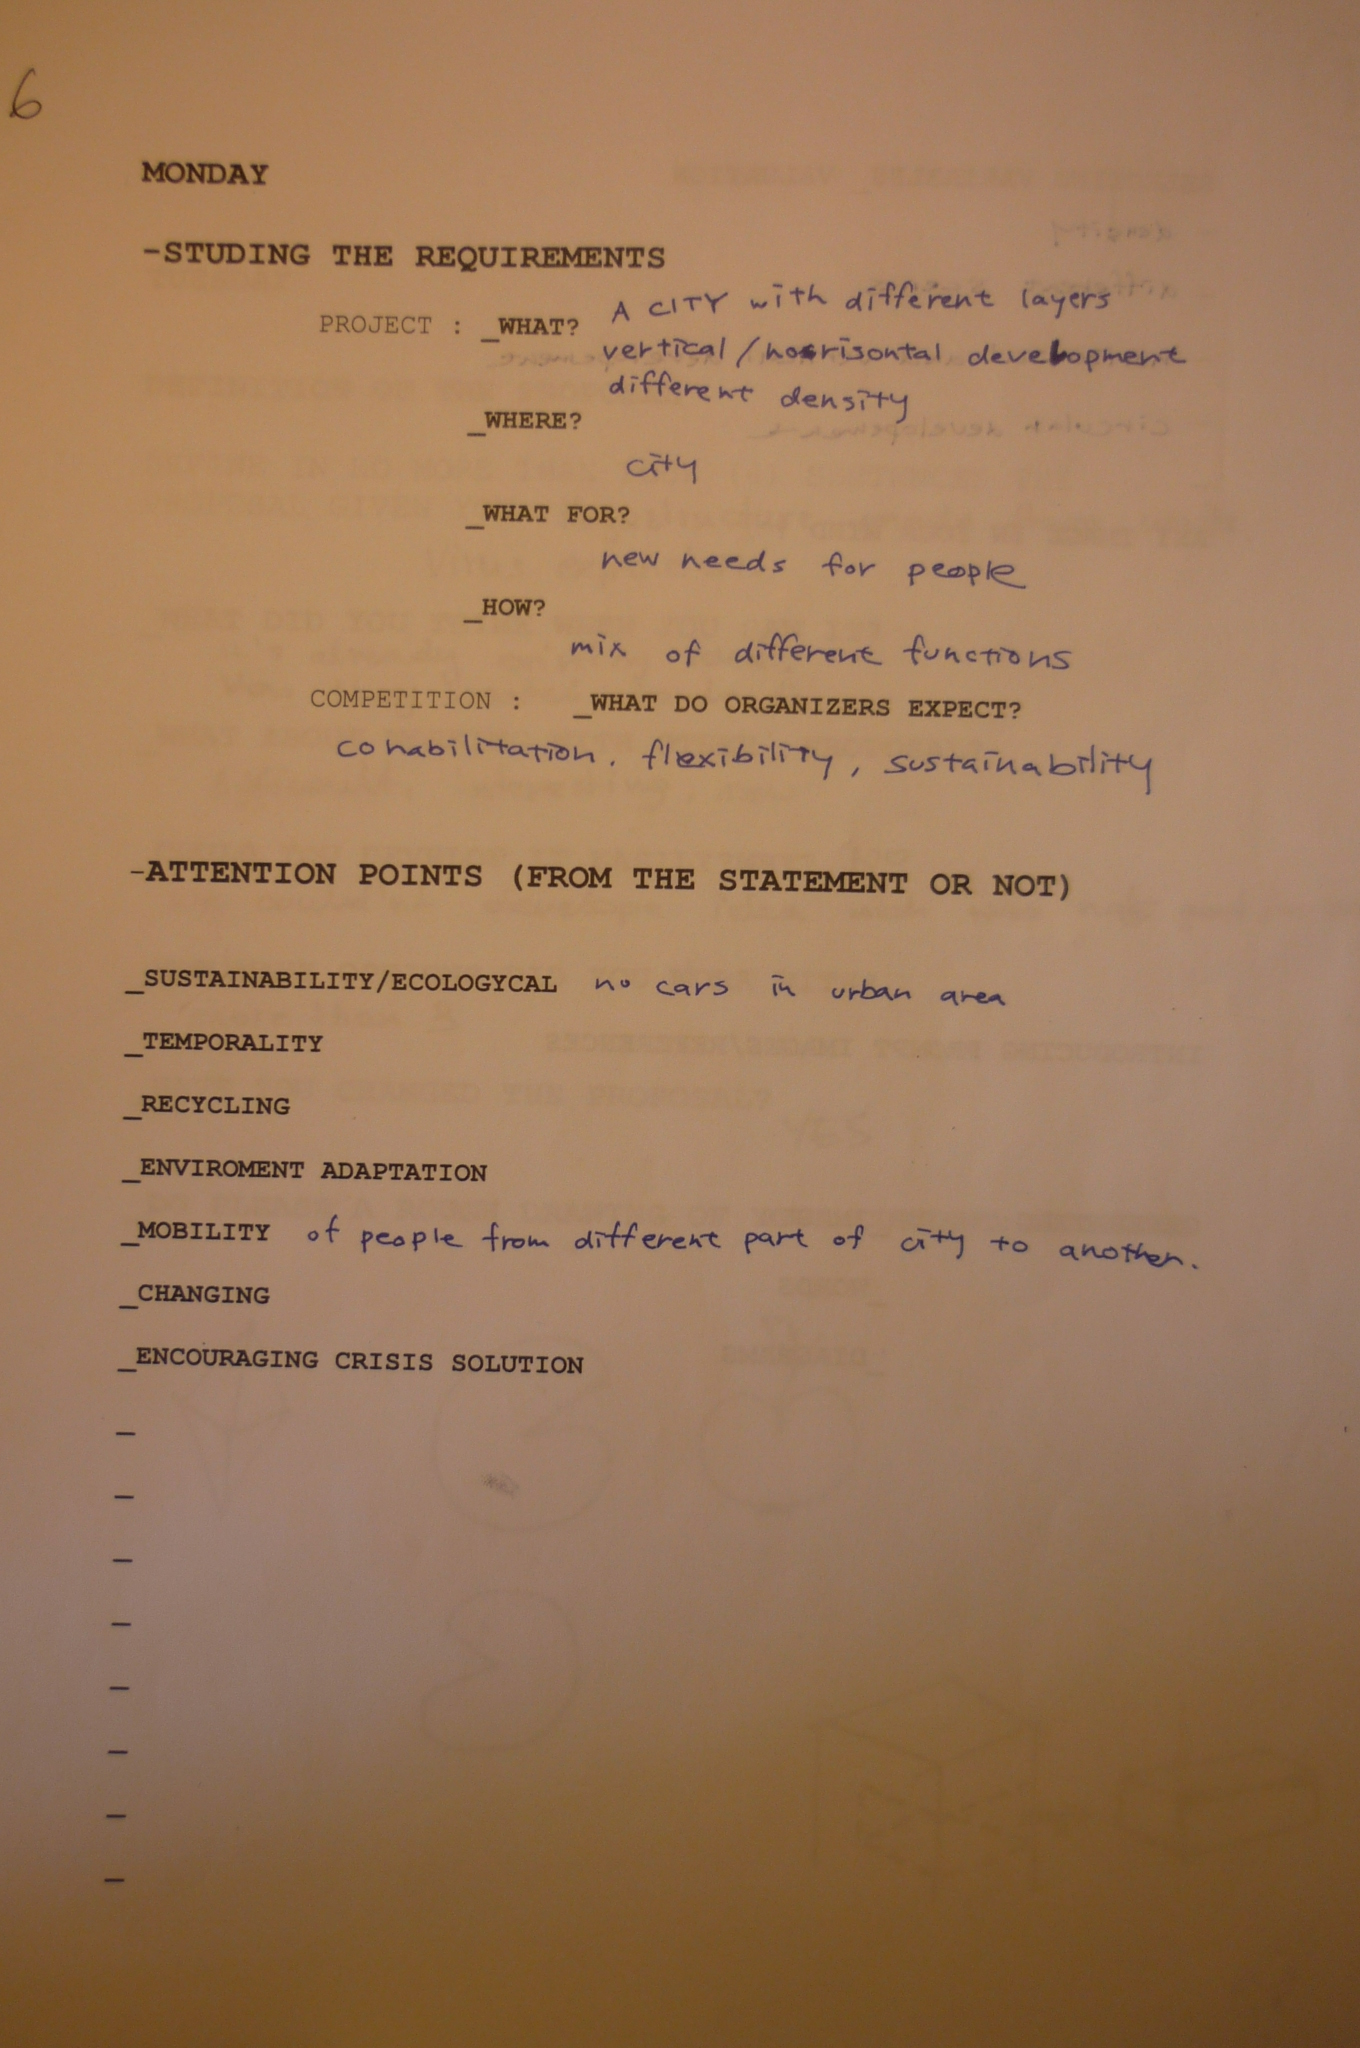 6
MONDAY
-STUDING THE REQUIREMENTS
PROJECT : _WHAT? A CITY with different layers
vertical/horrisontal development
different density
_WHERE?
city
_WHAT FOR?
new needs for people
_HOW?
mix of different functions
COMPETITION : _WHAT DO ORGANIZERS EXPECT?
cohabilitation, flexibility, sustainability
-ATTENTION POINTS (FROM THE STATEMENT OR NOT)
_SUSTAINABILITY/ECOLOGYCAL no cars in urban area
_TEMPORALITY
_RECYCLING
_ENVIROMENT ADAPTATION
_MOBILITY of people from different part of city to another.
_CHANGING
_ENCOURAGING CRISIS SOLUTION
_
_
_
_
_
_
_
_